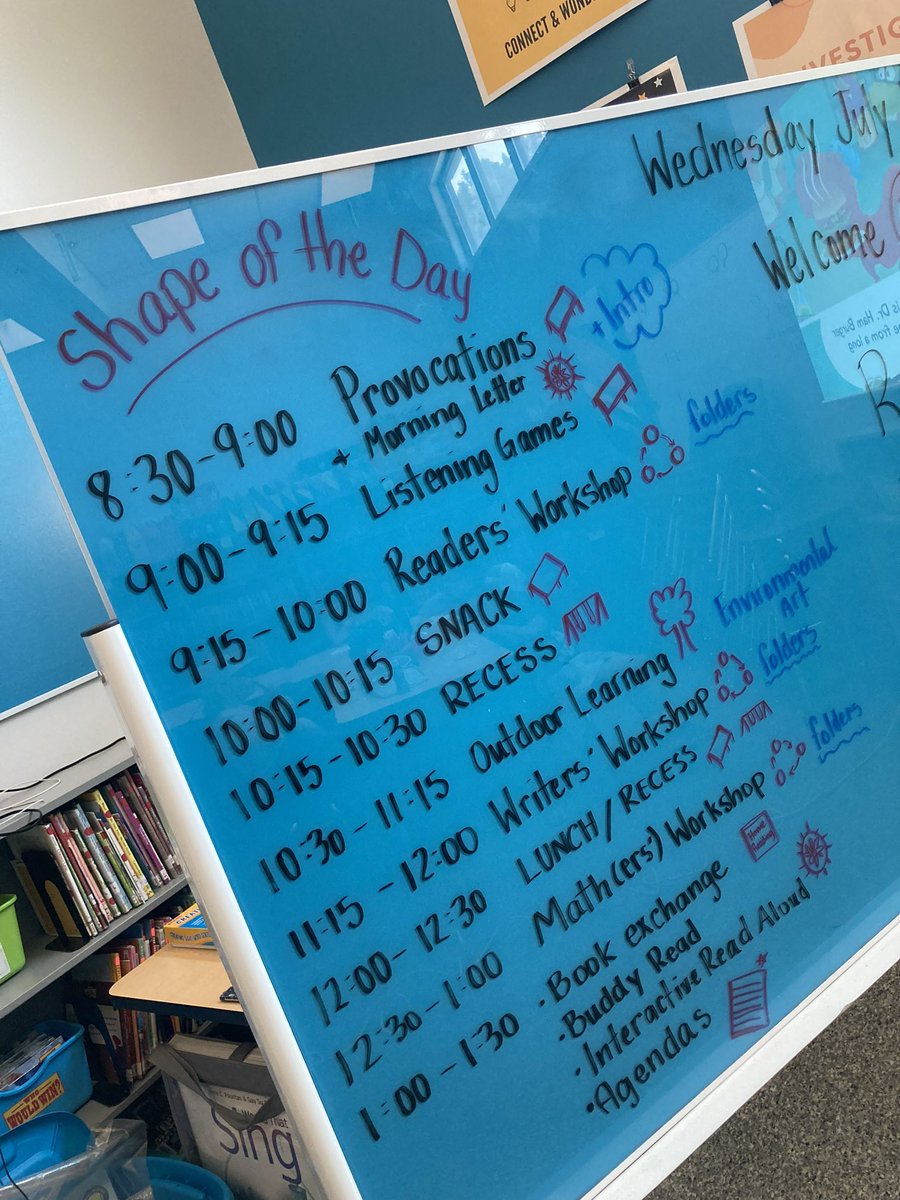 CONNECT & WONDER
INVESTIG
Wednesday July
Welcome
Shape of the Day
8:30-9:00 Provocations + Intro
+ Morning Letter
9:00-9:15 Listening Games
9:15-10:00 Readers' Workshop folders
10:00-10:15 SNACK
10:15-10:30 RECESS
10:30-11:15 Outdoor Learning Environmental
Art
11:15-12:00 Writers' Workshop folders
12:00-12:30 LUNCH/RECESS
12:30-1:00 Math(ers') Workshop folders
1:00-1:30 • Book exchange
• Buddy Read
• Interactive Read Aloud
• Agendas
Home
Reading
is Dr. Ham Burger
me from a long
R
WHO
WOULD WIN?
Sing